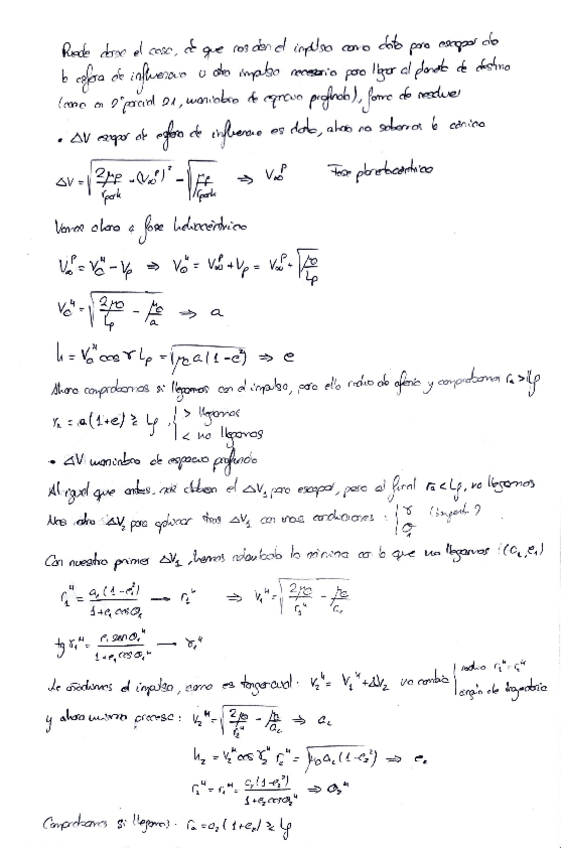 Puede darse el caso, de que nos den el impulso como dato para escapar de
la esfera de influencia u otro impulso necesario para llegar al planeta de destino
(como en 2º parcial D1, maniobra de espacio profundo), forma de resolver
• ΔV escapar de esfera de influencia es dato, ahora no sabemos la cónica
ΔV = √(2μp/rpark + (V∞^P)²) - √(μp/rpark) ⇒ V∞^P Fase planetocéntrica
Vamos ahora a fase heliocéntrica
V∞^P = V0^H - Vp ⇒ V0^H = V∞^P + Vp = V∞^P + √(μ0/Lp)
V0^H = √(2μ0/Lp - μ0/a) ⇒ a
h = V0^H cos γ Lp = √(μ0 a (1-e²)) ⇒ e
Ahora comprobamos si llegamos con el impulso, para ello radio de afelio y comprobamos ra > Lp
ra = a(1+e) ≥ Lp { > llegamos
< no llegamos
• ΔV maniobra de espacio profundo
Al igual que antes, nos daban el ΔV1 para escapar, pero al final ra < Lp, no llegamos
Nos dan ΔV2 para aplicar tras ΔV1 con unas condiciones: { r
θ
Con nuestro primer ΔV1, hemos calculado la misma con la que no llegamos: (a1, e1)
r1^H = a1(1-e1²)/(1+e1 cosθ1) → r1^H ⇒ V1^H = √(2μ0/r1^H - μ0/a1)
tg γ1^H = e1 senθ1^H/(1+e1 cosθ1^H) → γ1^H
Le añadimos el impulso, como es tangencial: V2^H = V1^H + ΔV2 no cambia { radio r2^H = r1^H
ángulo de trayectoria
y ahora mismo proceso: V2^H = √(2μ0/r2^H - μ0/a2) ⇒ a2
h2 = V2^H cos γ2^H r2^H = √(μ0 a2 (1-e2²)) ⇒ e2
r2^H = r1^H = a2(1-e2²)/(1+e2 cosθ2^H) ⇒ θ2^H
Comprobamos si llegamos: ra = a2(1+e2) ≥ Lp